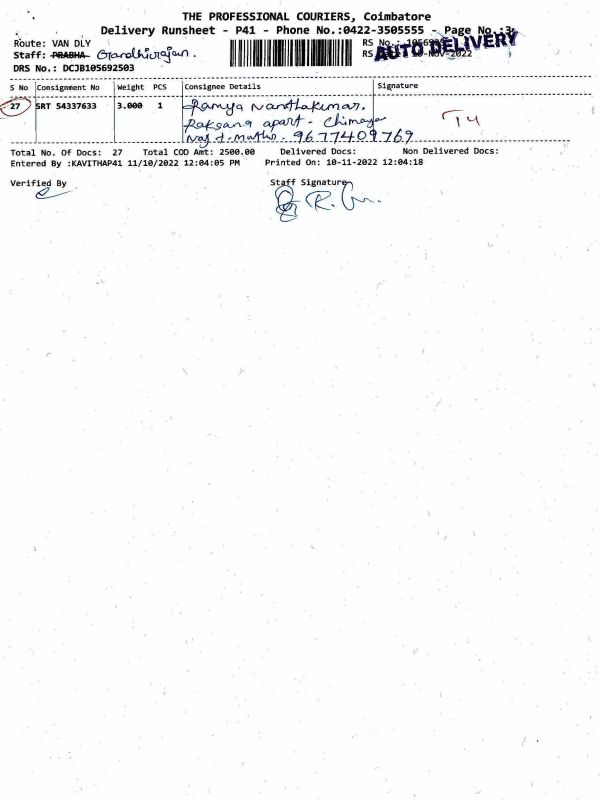 THE PROFESSIONAL COURIERS, Coimbatore
Delivery Runsheet - P41 - Phone No.:0422-3505555 - Page No.:3
Route: VAN DLY
RS No.:
AUTO DELIVERY
Staff: PRABHA Gandhirajan.
RS 10-Nov-2022
DRS No.: DCJB105692503
S No Consignment No Weight PCS Consignee Details Signature
27 SRT 54337633 3.000 1 Ramya Nanthakumar.
Raksana apart - Chimaya
9677409769
T4
Total No. Of Docs: 27 Total COD Amt: 2500.00 Delivered Docs: Non Delivered Docs:
Entered By :KAVITHAP41 11/10/2022 12:04:05 PM Printed On: 10-11-2022 12:04:18
Verified By Staff Signature